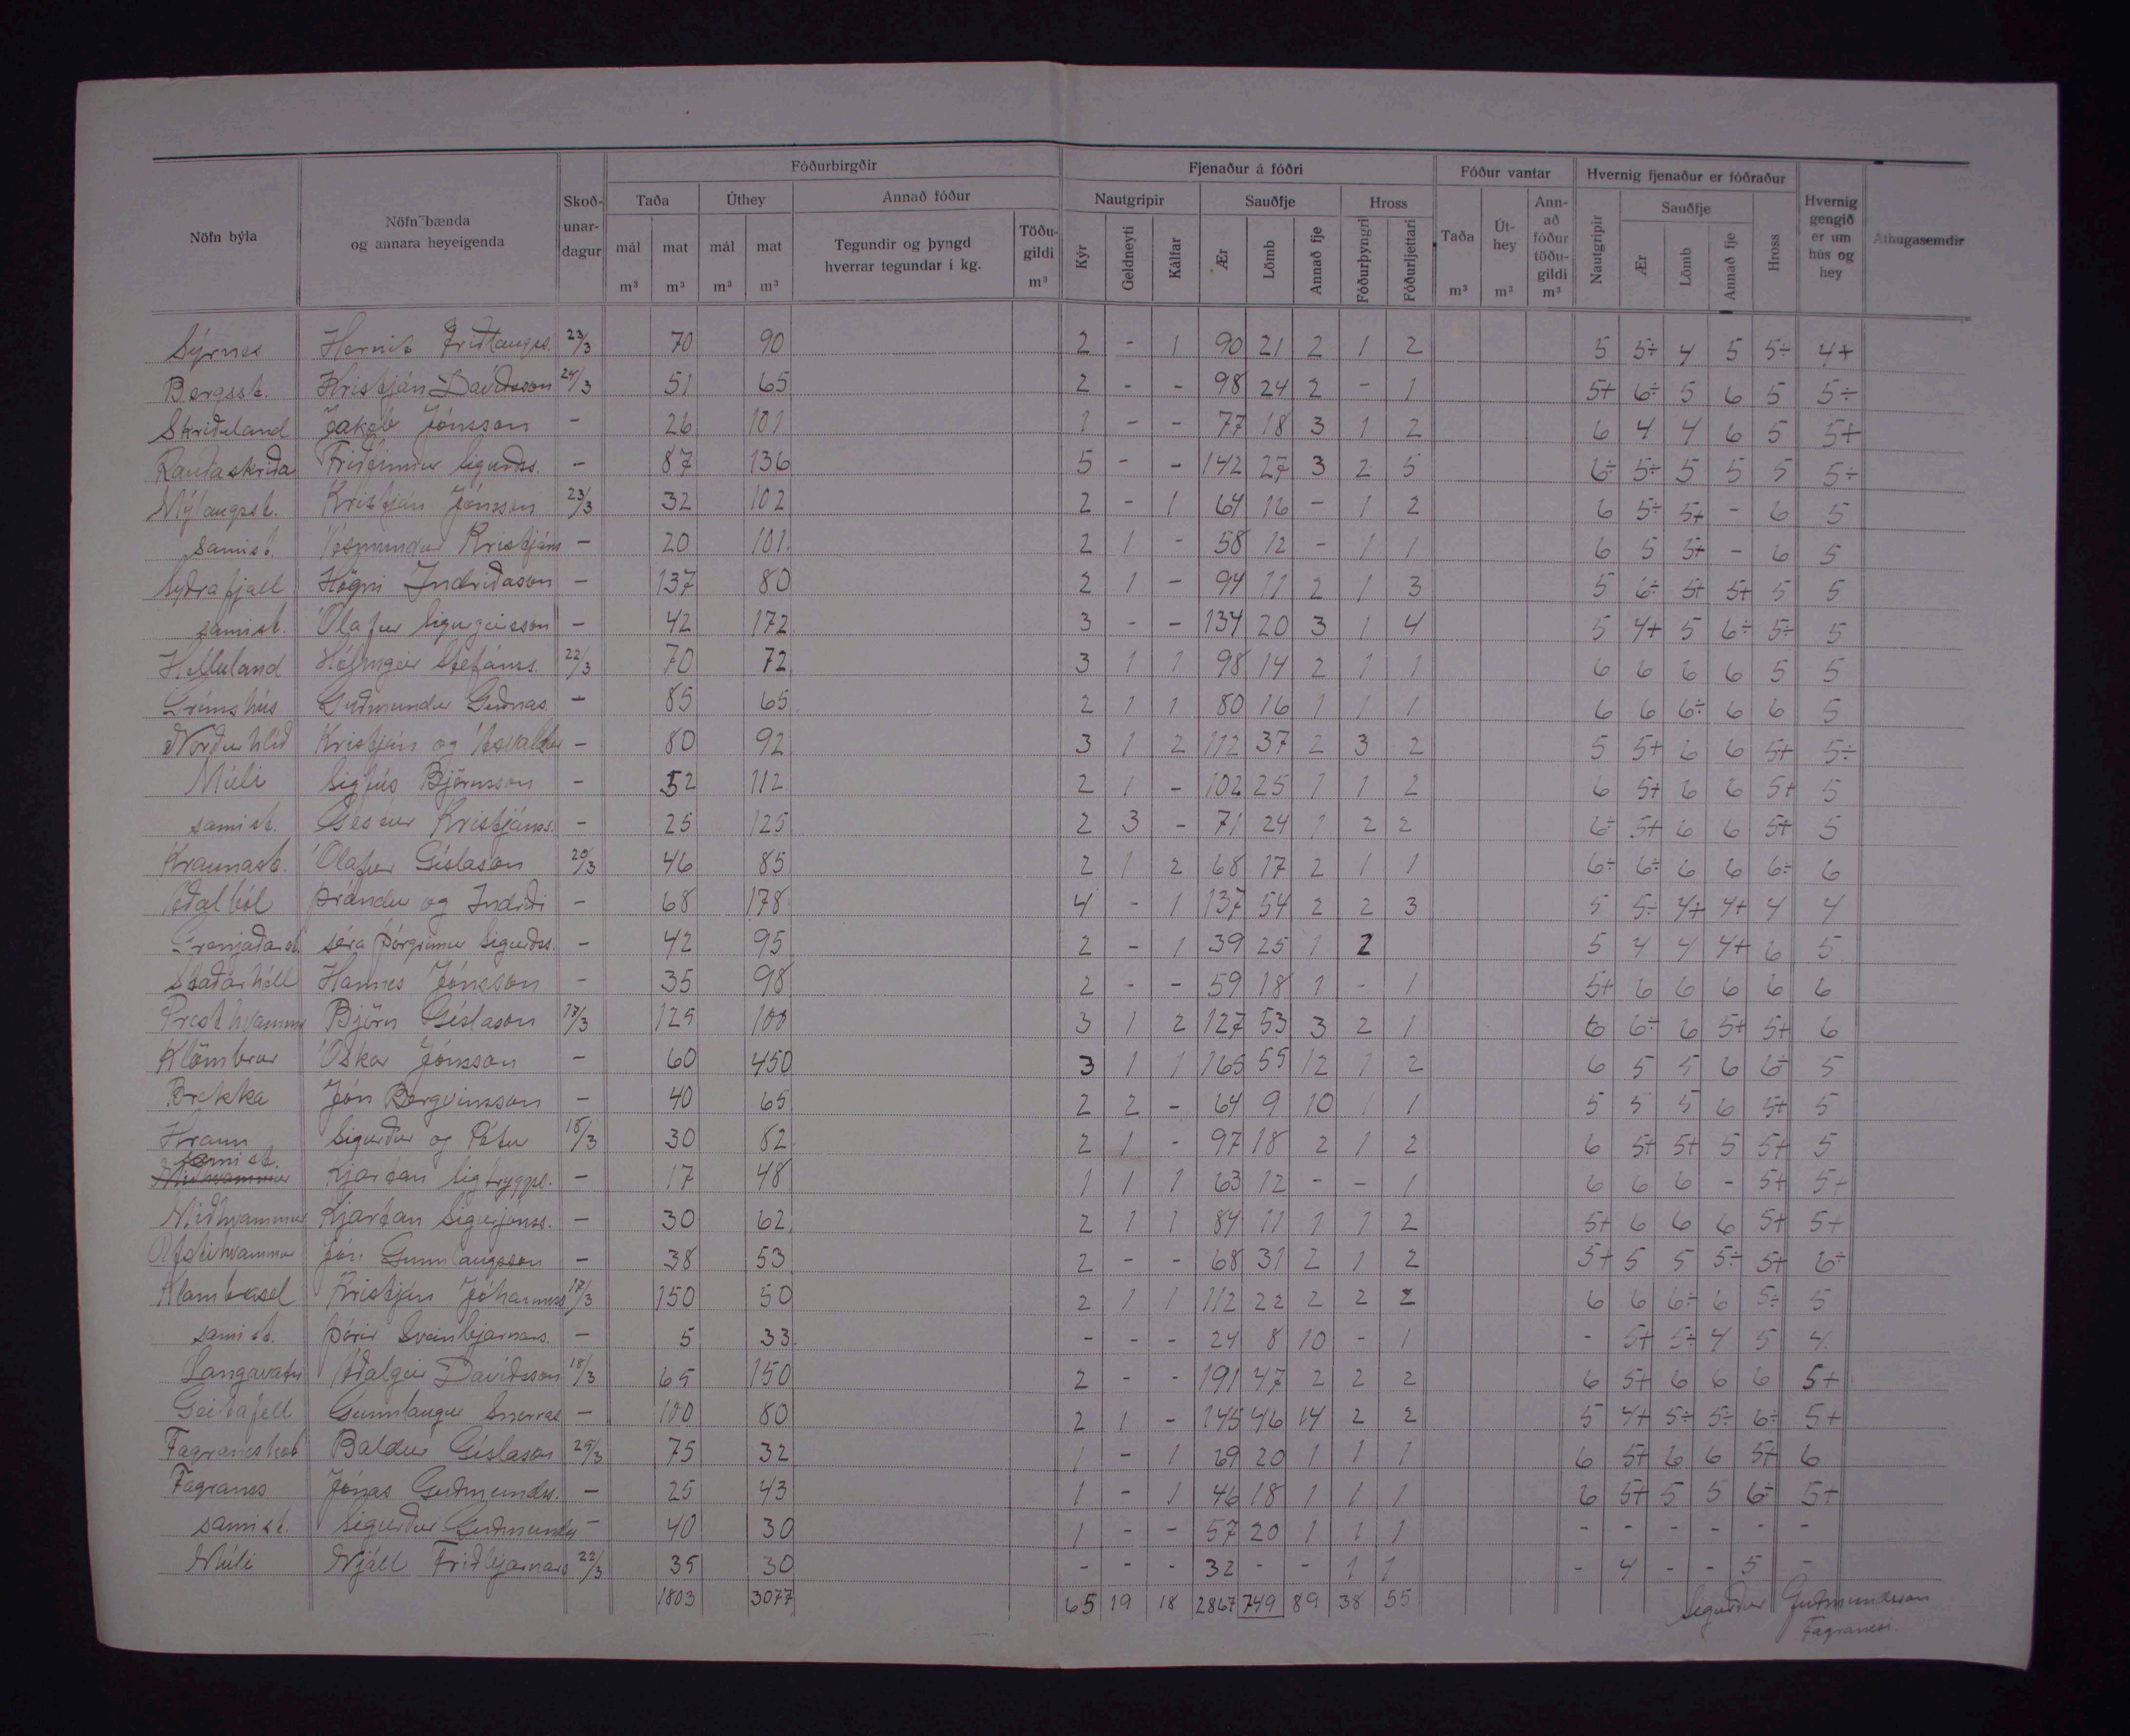 Fóðurbirgðir Fjenaður á fóðri Fóður vantar Hvernig fjenaður er fóðraður
Nöfn býla Nöfn bænda og annara heyeigenda Skoð-unar-dagur Taða Úthey Annað fóður Nautgripir Sauðfje Hross Taða Út-hey Ann-að fóður töðu-gildi Nautgripir Sauðfje Hross Hvernig gengið er um hús og hey Athugasemdir
mál mat mál mat Tegundir og þyngd hverrar tegundar í kg. Töðu-gildi Kýr Geldneyti Kálfar Ær Lömb Annað fje Fóðurþyngri Fóðurljettari Ær Lömb Annað fje
m³ m³ m³ m³ m³ m³ m³ m³
Sýrnes Hernit Friðlaugss. 23/3 70 90 2 - 1 90 21 2 1 2 5 5÷ 4 5 5÷ 4+
Bergsst. Kristján Davíðsson 24/3 51 65 2 - - 98 24 2 - 1 5+ 6÷ 5 6 5 5÷
Skriðuland Jakob Jónsson - 26 101 1 - - 77 18 3 1 2 6 4 4 6 5 5+
Rauðaskriða Friðfinnur Sigurðss. - 87 136 5 - - 142 27 3 2 5 6÷ 5÷ 5 5 5 5÷
Mýlaugsst. Kristján Jónsson 23/3 32 102 2 - 1 64 16 - 1 2 6 5÷ 5+ - 6 5
samist. Kristjáns - 20 101 2 1 - 58 12 - 1 1 6 5 5+ - 6 5
Syðrafjall Högni Indriðason - 137 80 2 1 - 94 11 2 1 3 5 6÷ 5+ 5+ 5 5
samist. Ólafur Sigurgeirsson - 42 172 3 - - 134 20 3 1 4 5 4+ 5 6÷ 5÷ 5
Helluland Hólmgeir Stefánss. 22/3 70 72 3 1 1 98 14 2 1 1 6 6 6 6 5 5
Grímshús Guðmundur Guðnas. - 85 65 2 1 1 80 16 1 1 1 6 6 6÷ 6 6 5
Norðurhlíð Kristján og Ásvaldur - 80 92 3 1 2 112 37 2 3 2 5 5+ 6 6 5+ 5÷
Múli Sigfús Björnsson - 52 112 2 1 - 102 25 1 1 2 6 5+ 6 6 5+ 5
samist. Gestur Kristjánss. - 25 125 2 3 - 71 24 1 2 2 6÷ 5+ 6 6 5+ 5
Kraunast. Ólafur Gíslason 20/3 46 85 2 1 2 68 17 2 1 1 6÷ 6÷ 6 6 6÷ 6
Aðalból Þrándur og Indriði - 68 178 4 - 1 137 54 2 2 3 5 5÷ 4+ 4+ 4 4
Grenjaðarst. séra Þorgrímur Sigurðss. - 42 95 2 - 1 39 25 1 2 5 4 4 4+ 6 5
Staðarhóll Hannes Jónsson - 35 98 2 - - 59 18 1 - 1 5+ 6 6 6 6 6
Presthvammur Björn Gíslason 17/3 125 100 3 1 2 127 53 3 2 1 6 6÷ 6 5+ 5+ 6
Klömbrur Óskar Jónsson - 60 450 3 1 1 165 55 12 1 2 6 5 5 6 6÷ 5
Brekka Jón Bergvinsson - 40 65 2 2 - 64 9 10 1 1 5 5 5 6 5+ 5
Hraun Sigurður og Pétur 18/3 30 82 2 1 - 97 18 2 1 2 6 5+ 5+ 5 5+ 5
samist. Kjartan Sigtryggss. - 17 48 1 1 1 63 12 - - 1 6 6 6 - 5+ 5+
Miðhvammur Kjartan Sigurjónss. - 30 62 2 1 1 84 11 1 1 2 5+ 6 6 6 5+ 5+
Ystihvammur Jón Gunnlaugsson - 38 53 2 - - 68 31 2 1 2 5+ 5 5 5÷ 5+ 6÷
Klambrasel Kristján Jóhanness 17/3 150 50 2 1 1 112 22 2 2 2 6 6 6÷ 6 5÷ 5
samist. Þórir Sveinbjarnars. - 5 33 - - - 24 8 10 - 1 - 5+ 5÷ 4 5 4
Langavatn Aðalgeir Davíðsson 18/3 65 150 2 - - 191 47 2 2 2 6 5+ 6 6 6 5+
Geitafell Gunnlaugur Snorras - 100 80 2 1 - 145 46 14 2 2 5 4+ 5÷ 5÷ 6÷ 5+
Fagraneskot Baldur Gíslason 25/3 75 32 1 - 1 69 20 1 1 1 6 5+ 6 6 5+ 6
Fagranes Jónas Guðmundss. - 25 43 1 - 1 46 18 1 1 1 6 5+ 5 5 6÷ 5+
samist. Sigurður Guðmunds - 40 30 1 - - 57 20 1 1 1 - - - - - -
Múli Njáll Friðbjarnars 22/3 35 30 - - - 32 - - 1 1 - 4 - - 5 -
1803 3077 65 19 18 2867 749 89 38 55
Sigurður Guðmundsson
Fagranesi.